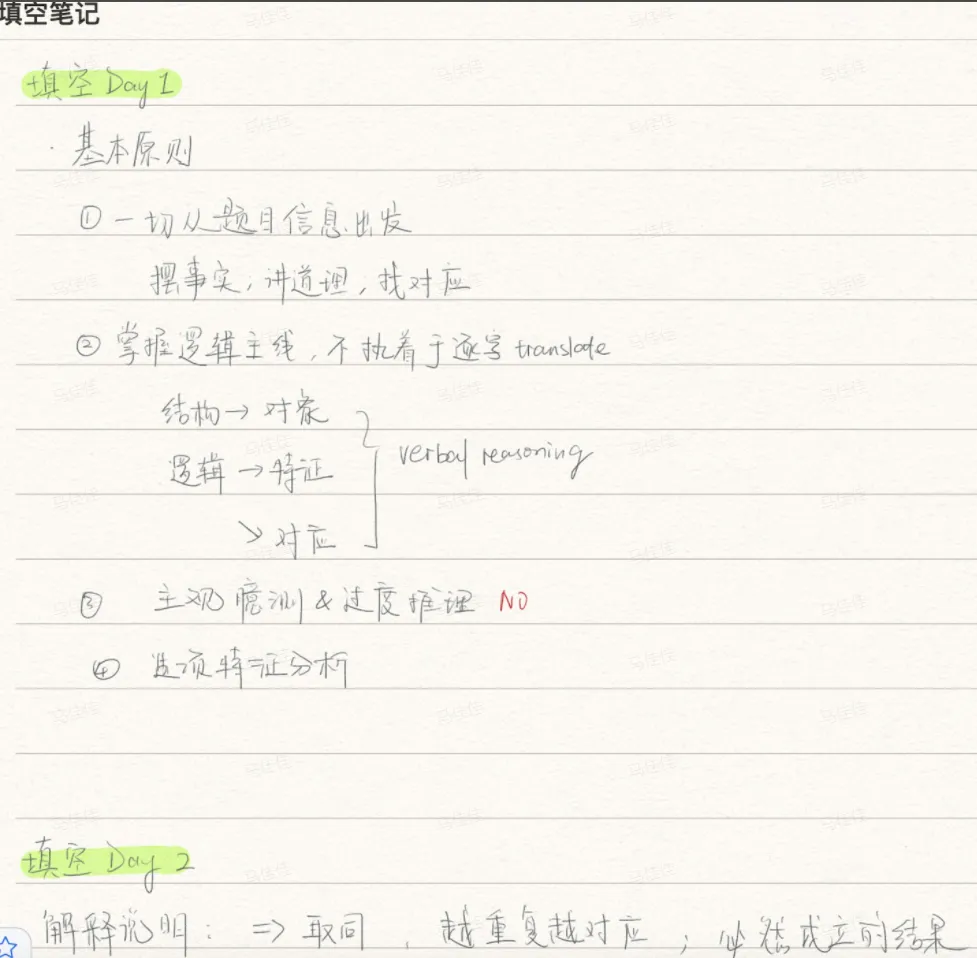 填空笔记
填空 Day 1
· 基本原则
① 一切从题目信息出发
摆事实，讲道理，找对应
② 掌握逻辑主线，不执着于逐字 translate
结构→ 对象
逻辑→特征
verbal reasoning
↘ 对应
③ 主观臆测 & 过度推理 NO
④ 选项特征分析
填空 Day 2
解释说明：=> 取同，越重复越对应；必然成立的结果